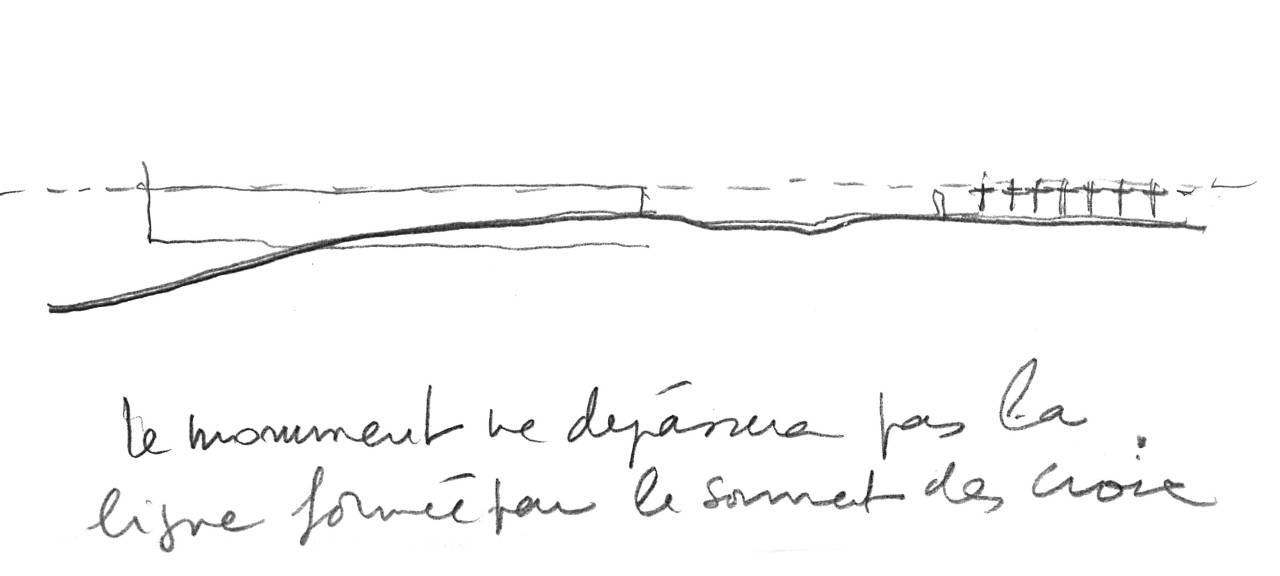 le monument ne depássera pas la
ligne formée par le sommet des croix